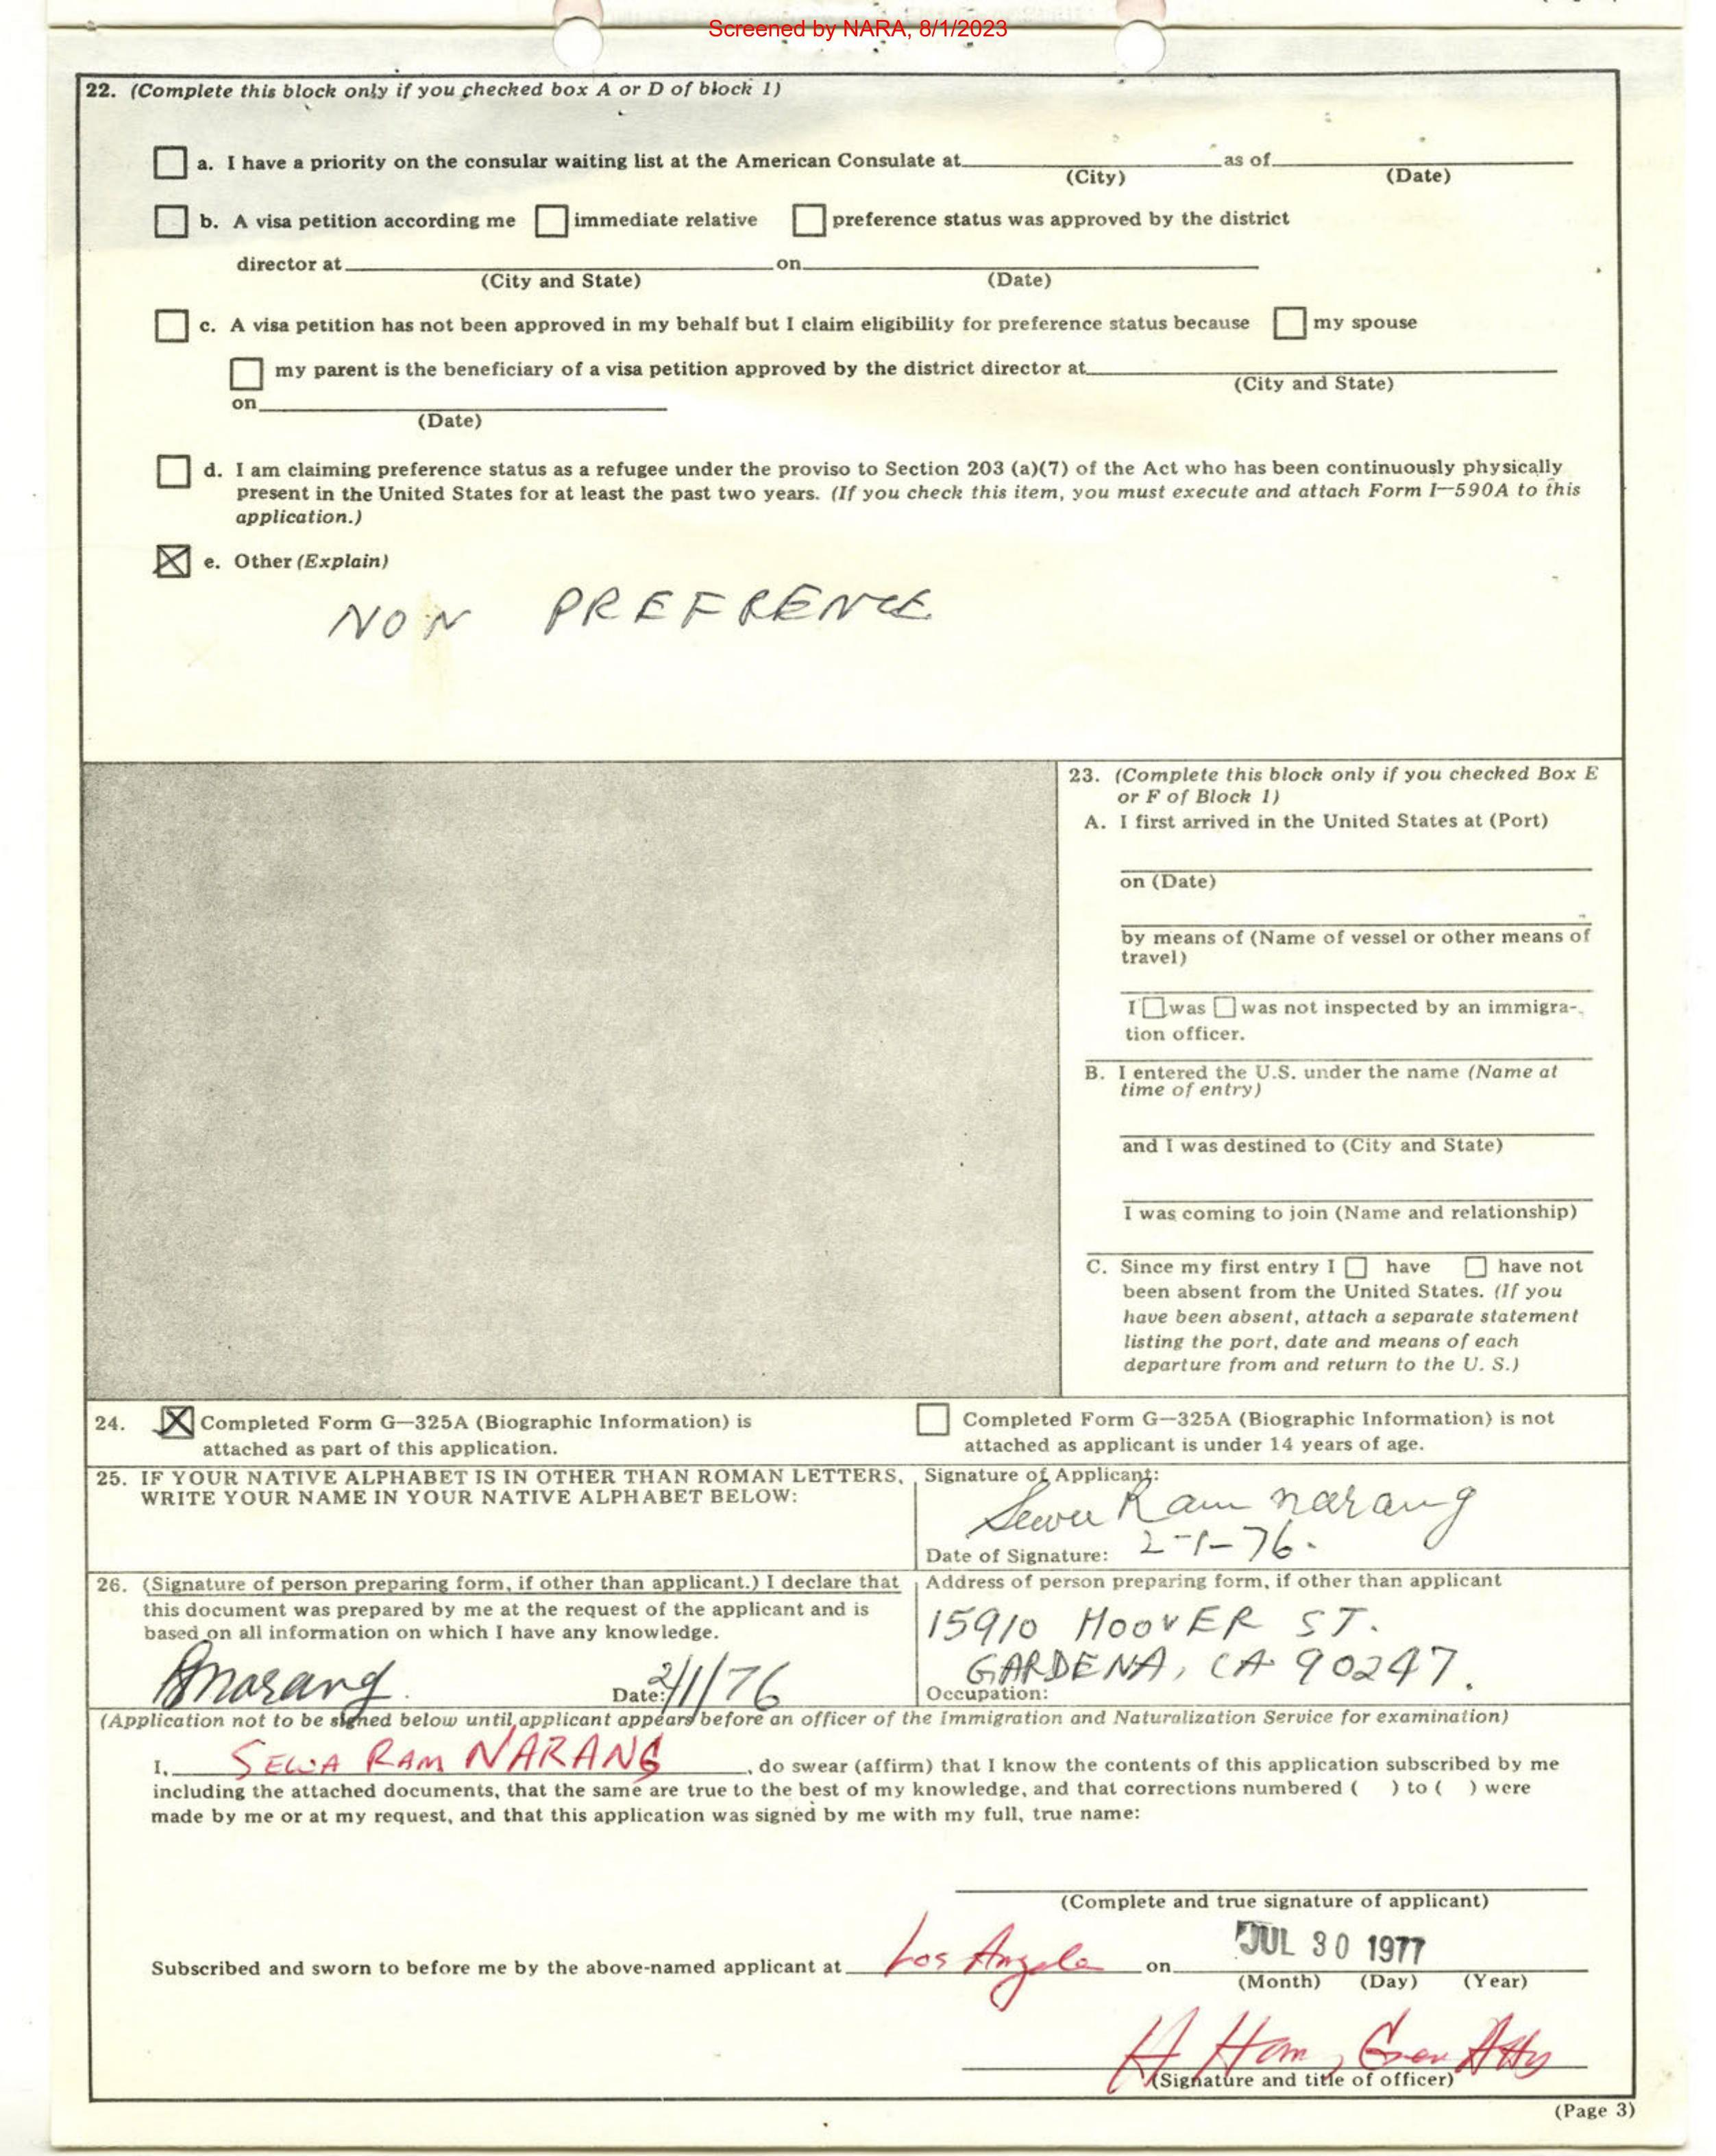 Screened by NARA, 8/1/2023
22. (Complete this block only if you checked box A or D of block 1)
a. I have a priority on the consular waiting list at the American Consulate at as of
(City) (Date)
b. A visa petition according me immediate relative preference status was approved by the district
director at on
(City and State) (Date)
c. A visa petition has not been approved in my behalf but I claim eligibility for preference status because my spouse
my parent is the beneficiary of a visa petition approved by the district director at
(City and State)
on
(Date)
d. I am claiming preference status as a refugee under the proviso to Section 203 (a)(7) of the Act who has been continuously physically
present in the United States for at least the past two years. (If you check this item, you must execute and attach Form I—590A to this
application.)
e. Other (Explain)
NON PREFRENCE
23. (Complete this block only if you checked Box E
or F of Block 1)
A. I first arrived in the United States at (Port)
on (Date)
by means of (Name of vessel or other means of
travel)
I was was not inspected by an immigra-
tion officer.
B. I entered the U.S. under the name (Name at
time of entry)
and I was destined to (City and State)
I was coming to join (Name and relationship)
C. Since my first entry I have have not
been absent from the United States. (If you
have been absent, attach a separate statement
listing the port, date and means of each
departure from and return to the U. S.)
24. Completed Form G—325A (Biographic Information) is
attached as part of this application.
Completed Form G—325A (Biographic Information) is not
attached as applicant is under 14 years of age.
25. IF YOUR NATIVE ALPHABET IS IN OTHER THAN ROMAN LETTERS,
WRITE YOUR NAME IN YOUR NATIVE ALPHABET BELOW:
Signature of Applicant:
Sewa Ram Narang
Date of Signature: 2-1-76.
26. (Signature of person preparing form, if other than applicant.) I declare that
this document was prepared by me at the request of the applicant and is
based on all information on which I have any knowledge.
Narang Date: 2/1/76
Address of person preparing form, if other than applicant
15910 HOOVER ST.
GARDENA, CA 90247.
Occupation:
(Application not to be signed below until applicant appears before an officer of the Immigration and Naturalization Service for examination)
I, SEWA RAM NARANG, do swear (affirm) that I know the contents of this application subscribed by me
including the attached documents, that the same are true to the best of my knowledge, and that corrections numbered ( ) to ( ) were
made by me or at my request, and that this application was signed by me with my full, true name:
(Complete and true signature of applicant)
Subscribed and sworn to before me by the above-named applicant at Los Angeles on JUL 30 1977
(Month) (Day) (Year)
(Signature and title of officer)
(Page 3)